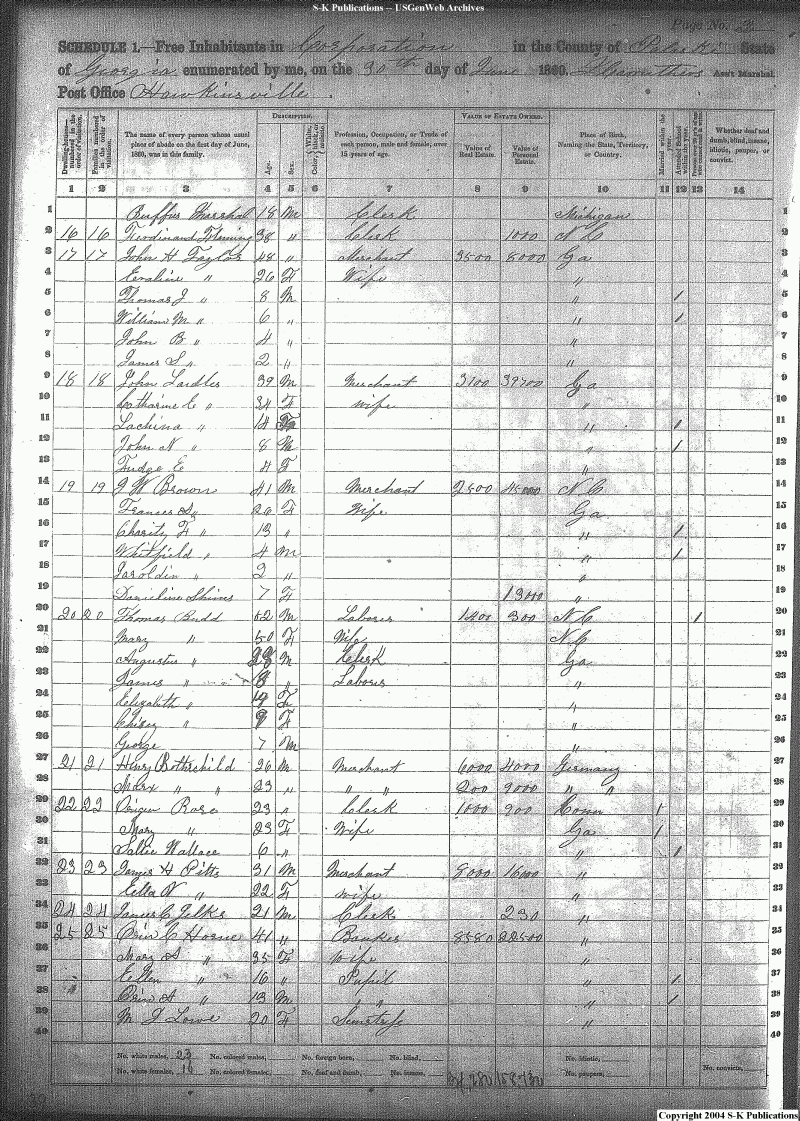 S-K Publications -- USGenWeb Archives
Page No. 3
SCHEDULE 1.—Free Inhabitants in Corporation in the County of Pulaski State
of Georgia enumerated by me, on the 30th day of June 1860. Ass't Marshal.
Post Office Hawkinsville.
DESCRIPTION. VALUE OF ESTATE OWNED.
Dwelling-houses—numbered in the order of visitation. Families numbered in the order of visitation. The name of every person whose usual place of abode on the first day of June, 1860, was in this family. Age. Sex. Color, White, black, or mulatto. Profession, Occupation, or Trade of each person, male and female, over 15 years of age. Value of Real Estate. Value of Personal Estate. Place of Birth, Naming the State, Territory, or Country. Married within the year. Attended School within the year. Whether deaf and dumb, blind, insane, idiotic, pauper, or convict.
1 2 3 4 5 6 7 8 9 10 11 12 13 14
1 Ruffus Marshal 18 M Clerk Michigan 1
2 16 16 Ferdinand Fleming 38 " Clerk 1000 N C 2
3 17 17 John H Taylor 48 " Merchant 3500 8000 Ga 3
4 Evaline " 26 F Wife " 4
5 Thomas J " 8 M " 1 5
6 William M " 6 " " 1 6
7 John B " 4 " " 7
8 James S " 2 " " 8
9 18 18 John Laidler 39 M Merchant 3100 39700 Ga 9
10 Catharine E " 34 F wife " 10
11 Lachina " 14 F " 1 11
12 John N " 8 M " 1 12
13 Fudge E 4 F " 13
14 19 19 J W Brown 41 M Merchant 2500 45000 N C 14
15 Frances " F Wife Ga 15
16 Charity F " 13 " " 1 16
17 Whitfield " 4 M " 1 17
18 " 2 " " 18
19 Danieline Shines 7 F 13000 " 19
20 20 20 Thomas Budd 62 M Laborer 1400 300 N C 1 20
21 Mary " 50 F Wife N C 21
22 Augustus " M Clerk Ga 22
23 James " " Laborer " 23
24 Elizabeth " F " 24
25 " 9 F " 25
26 George 7 M " 26
27 21 21 Henry Rothschild 26 M Merchant 6000 4000 Germany 27
28 Marx " 23 " " " 200 9000 " " 28
29 22 22 Rose 23 " Clerk 1000 900 Conn 1 29
30 Mary " 23 F Wife Ga 1 30
31 Sallie Wallace 6 " " 1 31
32 23 23 James H Pitts 31 M Merchant 8000 16000 " 32
33 Ella N " 22 F wife " 33
34 24 24 James C Jelks 21 M Clerk 230 " 34
35 25 25 Orin C Horne 41 " Banker 8580 22500 " 35
36 Mary A " 35 F wife " 36
37 Ellen " 16 " Pupil " 1 37
38 Orin A " 13 M " " 1 38
39 M J Lowe 20 F Semstress " 39
40 40
No. white males, 23 No. colored males, No. foreign born, No. blind, No. idiotic,
No. white females, 16 No. colored females, No. deaf and dumb, No. insane, No. paupers, No. convicts,
Copyright 2004 S-K Publications